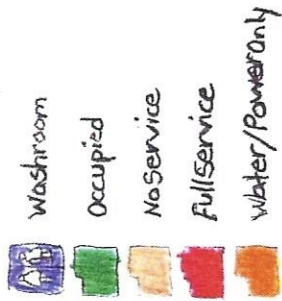 Washroom
Occupied
No Service
Full Service
Water/Power only